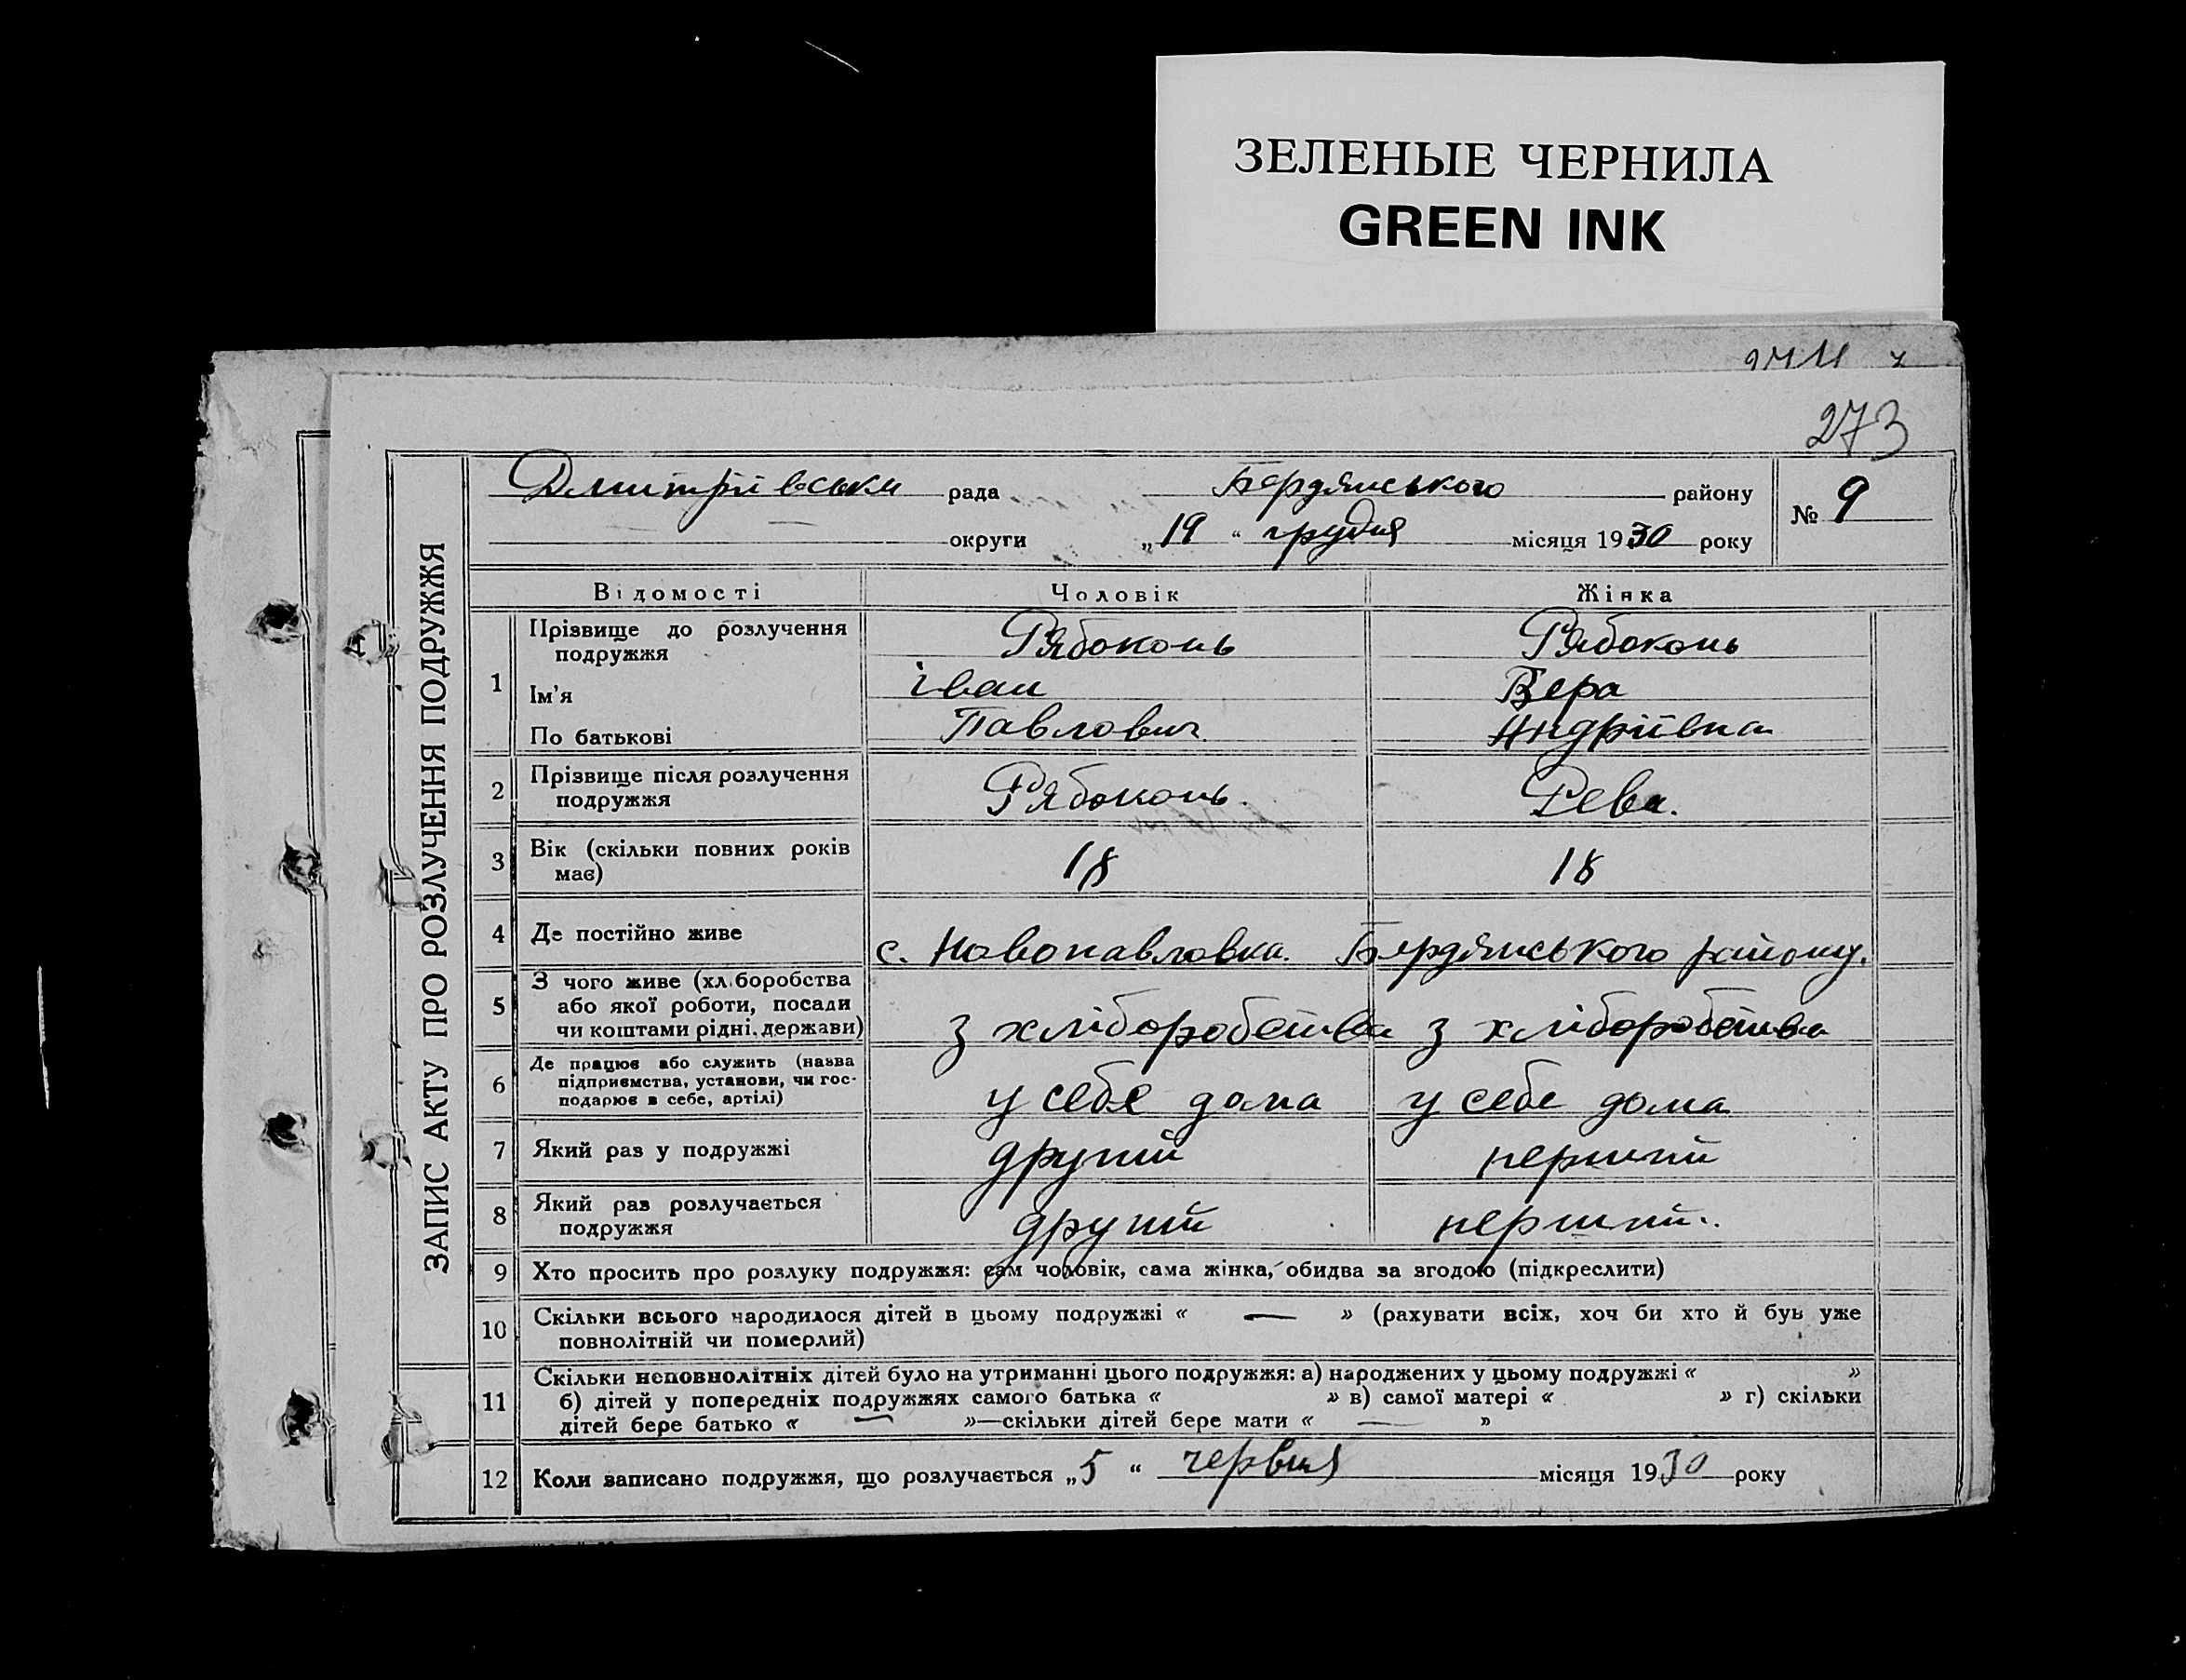 ЗЕЛЕНЫЕ ЧЕРНИЛА
GREEN INK
273
ЗАПИС АКТУ ПРО РОЗЛУЧЕННЯ ПОДРУЖЖЯ
Дмитріївська рада Бердянського району № 9
округи „19“ грудня місяця 1930 року
Відомості Чоловік Жінка
1 Прізвище до розлучення Рябоконь Рябоконь
подружжя
Ім'я іван Вера
По батькові Павлович Андріївна
2 Прізвище після розлучення Рябоконь. Рева.
подружжя
3 Вік (скільки повних років 18 18
має)
4 Де постійно живе с. Новопавловка. Бердянського району.
5 З чого живе (хліборобства
або якої роботи, посади
чи коштами рідні, держави) з хліборобства з хліборобства
6 Де працює або служить (назва
підприємства, установи, чи гос-
подарює в себе, артілі) у себе дома у себе дома
7 Який раз у подружжі другий перший
8 Який раз розлучається другий перший.
подружжя
9 Хто просить про розлуку подружжя: сам чоловік, сама жінка, обидва за згодою (підкреслити)
10 Скільки всього народилося дітей в цьому подружжі « — » (рахувати всіх, хоч би хто й був уже
повнолітній чи померлий)
11 Скільки неповнолітніх дітей було на утриманні цього подружжя: а) народжених у цьому подружжі « »
б) дітей у попередніх подружжях самого батька « » в) самої матері « » г) скільки
дітей бере батько « — »—скільки дітей бере мати « — »
12 Коли записано подружжя, що розлучається „5“ червня місяця 1930 року